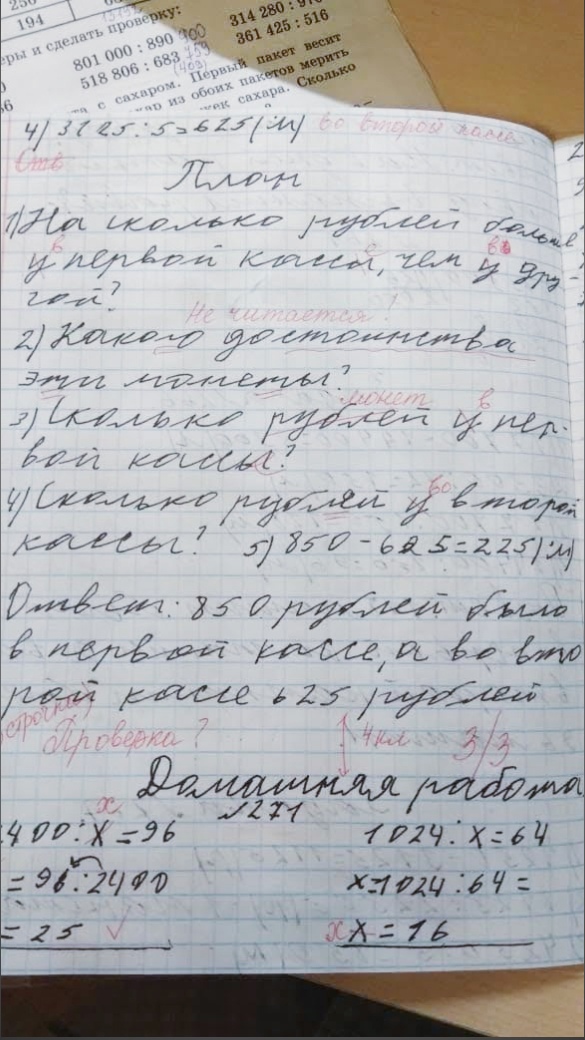 256
194
еры и сделать проверку:
801 000 : 890 900
314 280 : 970
518 806 : 683 759
361 425 : 516
(403)
та с сахаром. Первый пакет весит
из обоих пакетов мерить
жек сахара. Сколько
4) 3125:5=625(м) во второй кассе
Отв
План
1) На сколько рублей больше
в в во
у первой кассы, чем у дру
гой?
Не читается!
2) Какого достоинства
эти монеты?
монет в
3) Сколько рублей у пер-
вой кассы?
во
4) Сколько рублей у второй
кассы? 5) 850-625=225(м)
Ответ: 850 рублей было
в первой кассе, а во вто
рой касее 625 рублей
строчкой
Проверка? 4 кл 3/3
Домашняя работа
х №271
400:х=96 1024:х=64
=96:2400 х=1024:64=
=25 х х=16